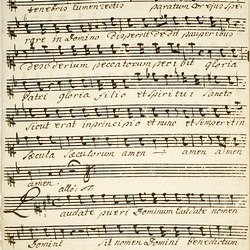 tenebris lumen rectis paratum cor ejus spe
rare in Domino dispersit dedit pauperibus
desiderium peccatorum peribit gloria
Patri gloria filio et spiritui sancto
sicut erat in principio et nunc et semper et in
sæcula sæculorum amen amen amen
amen
allo:
Laudate pueri Dominum laudate nomen
Domini Sit nomen Domini benedictum